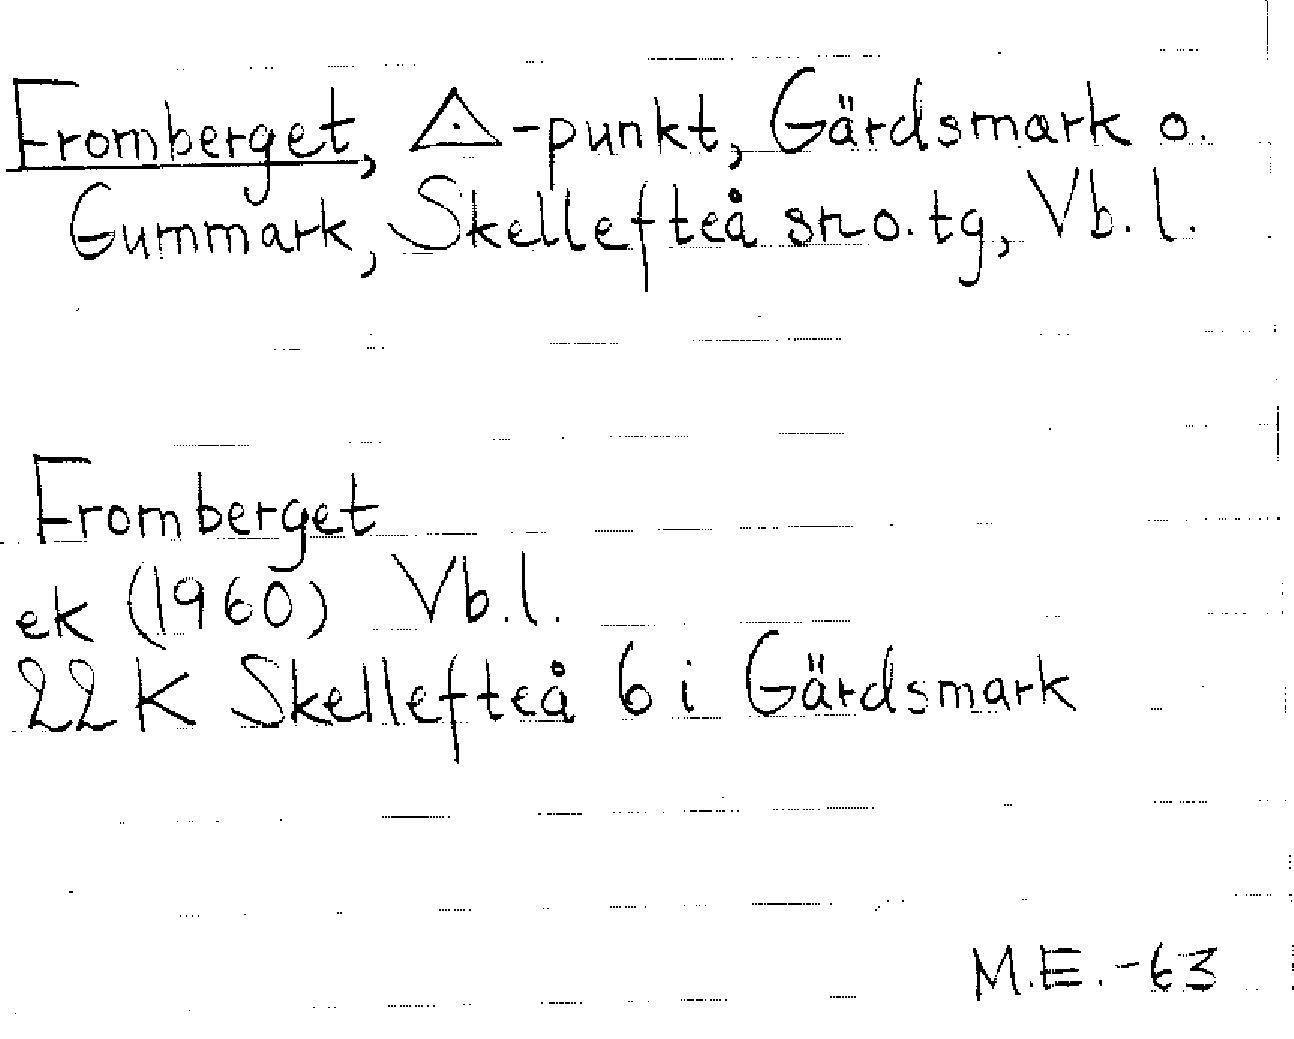 Fromberget, △-punkt, Gärdsmark o.
Gummark, Skellefteå sn o. tg, Vb. l.
Fromberget
ek (1960) Vb. l.
22 K Skellefteå 6 i Gärdsmark
M.E. -63